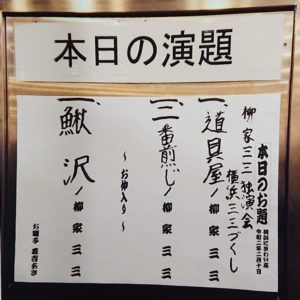 本日の演題
本日のお題
横浜にぎわい座
令和二年二月十日
柳家三三独演会
横浜三三づくし
一、道具屋/柳家三三
一、二番煎じ/柳家三三
〜お仲入り〜
一、鰍沢/柳家三三
お囃子